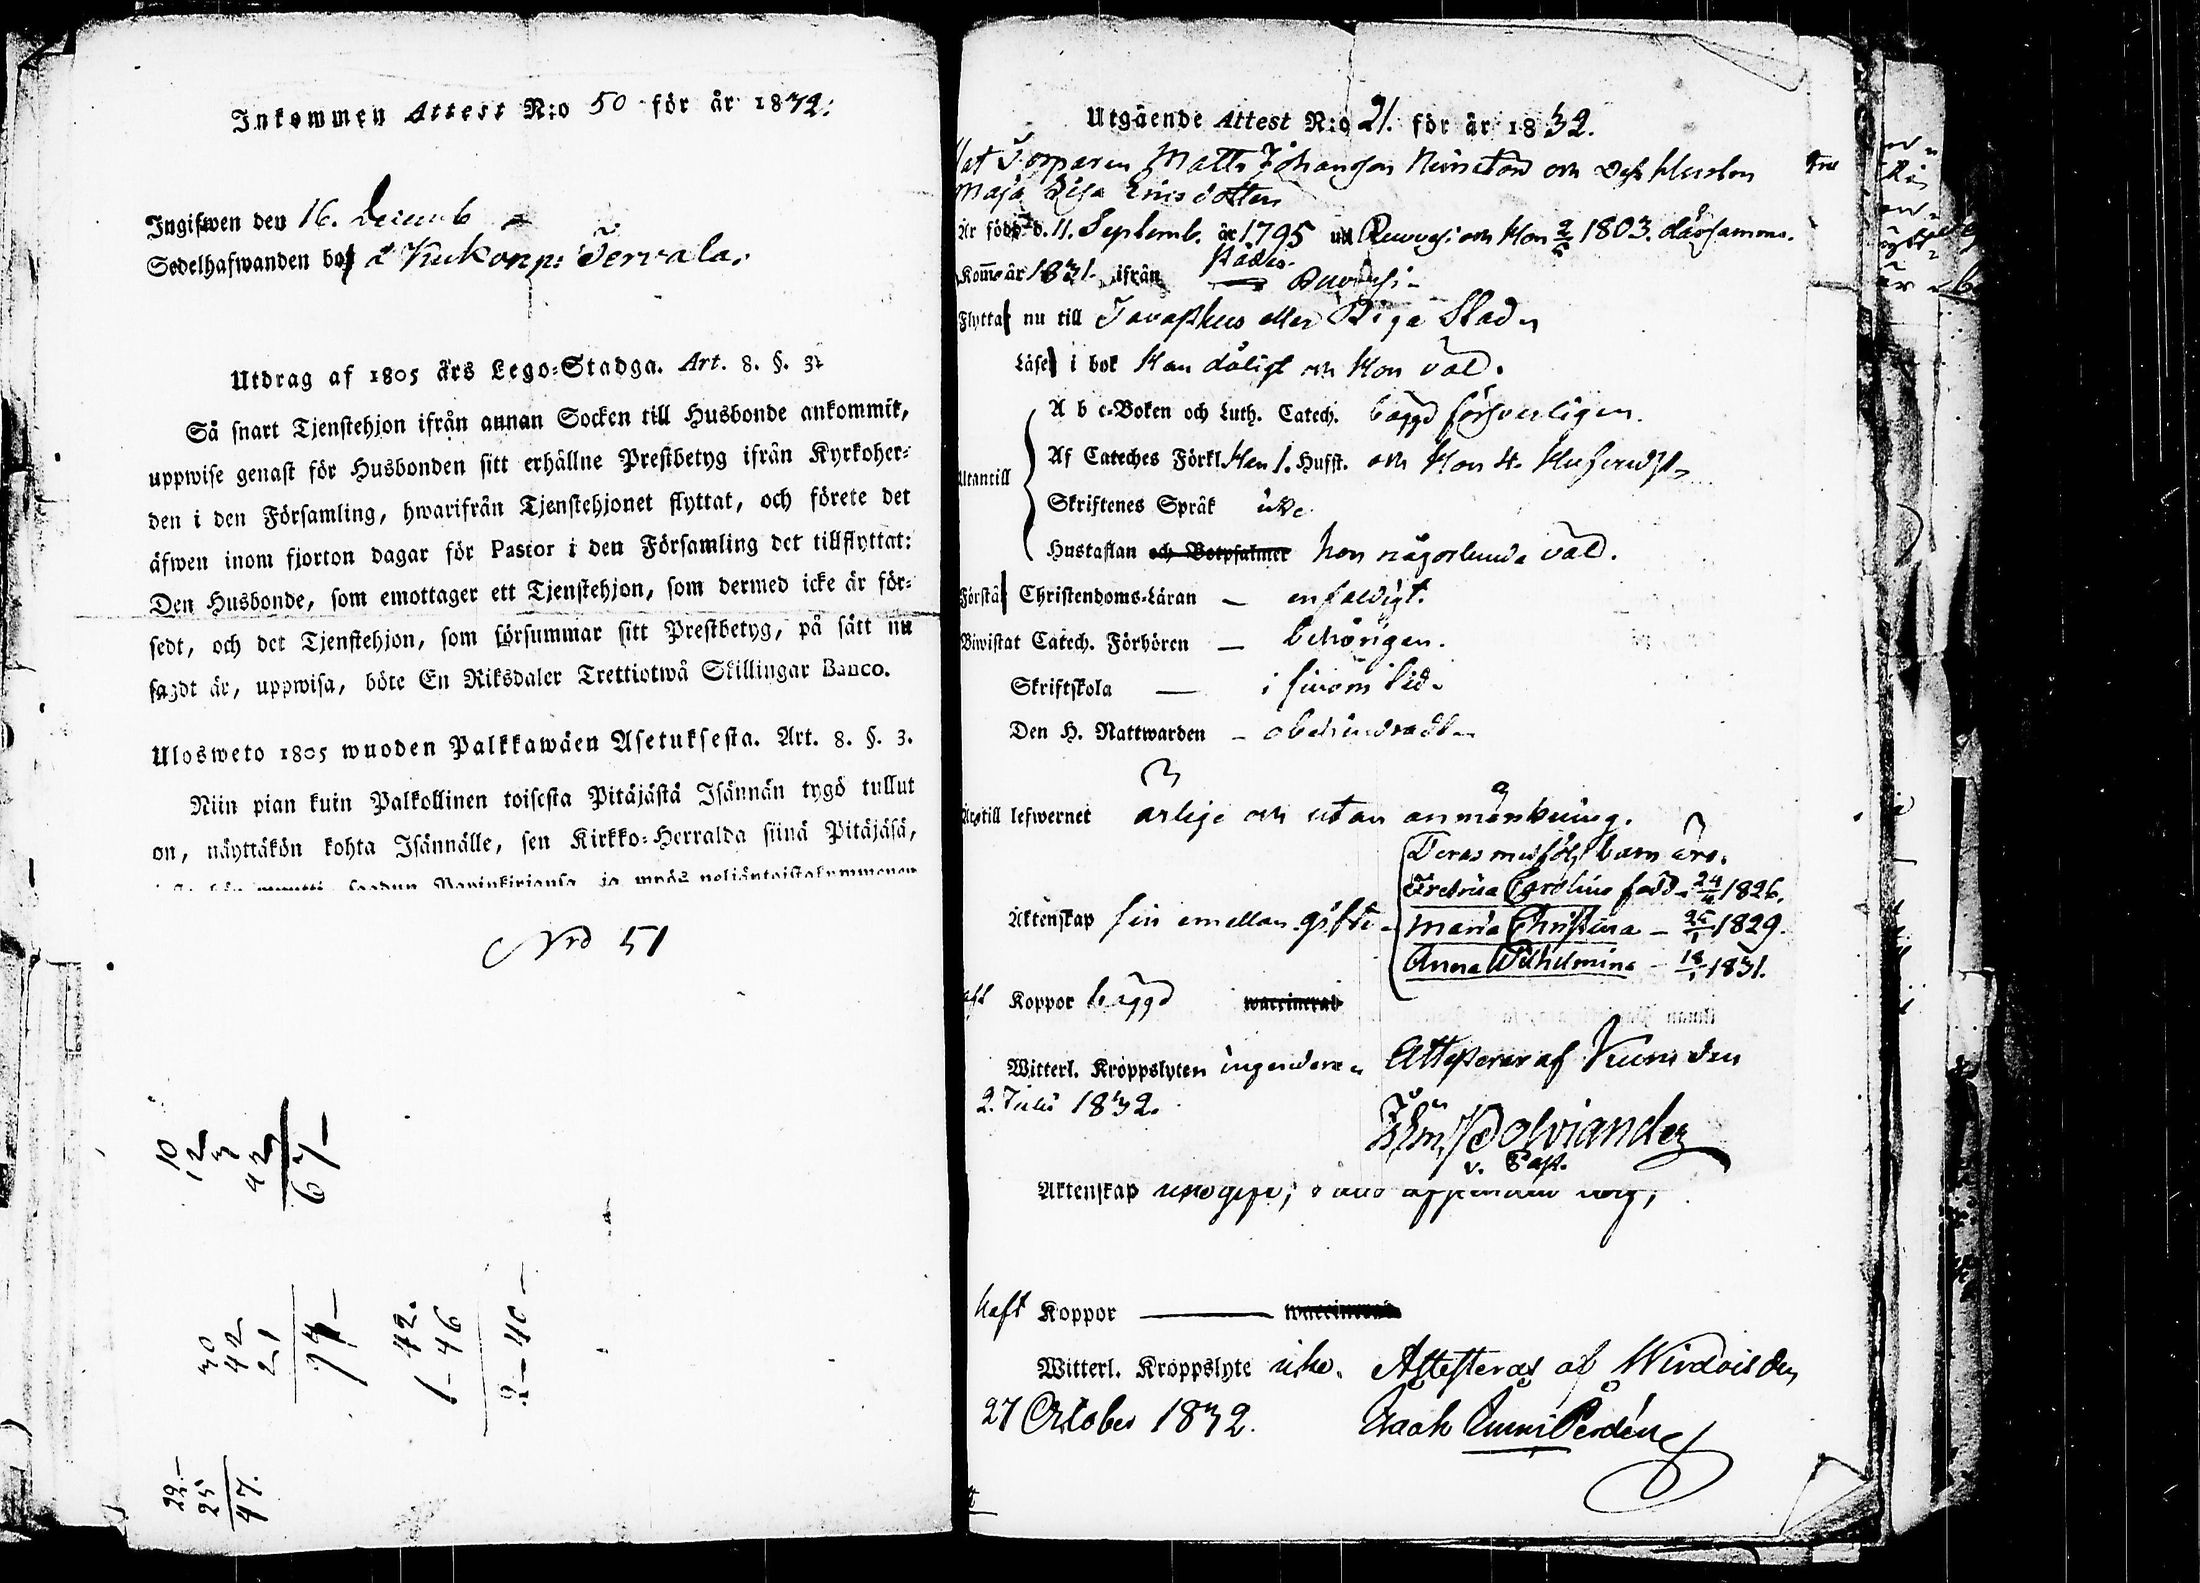 Inkommen Attest N:o 50 för år 1832.
Ingifwen den 16. Decemb
Sedelhafwanden bor å Kuckonp: Tervala.
Utdrag af 1805 års Lego-Stadga. Art. 8. §. 3.
Så snart Tjenstehjon ifrån annan Socken till Husbonde ankommit,
uppwise genast för Husbonden sitt erhållne Prestbetyg ifrån Kyrkoher-
den i den Församling, hwarifrån Tjenstehjonet flyttat, och förete det
äfwen inom fjorton dagar för Pastor i den Församling det tillflyttat:
Den Husbonde, som emottager ett Tjenstehjon, som dermed icke är för-
sedt, och det Tjenstehjon, som försummar sitt Prestbetyg, på sätt nu
sagdt är, uppwisa, böte En Riksdaler Trettiotwå Skillingar Banco.
Ulosweto 1805 wuoden Palkkawäen Asetuksesta. Art. 8. §. 3.
Niin pian kuin Palkollinen toisesta Pitäjästä Isännän tygö tullut
on, näyttäkön kohta Isännälle, sen Kirkko-Herralda siinä Pitäjäsä,
Nro 51
10
12
3
42
67 –
30
42
21
42.
1 – 46
2 – 40 –
22 –
25
47.
Utgående Attest N:o 21. för år 1832.
at Torparen Matts Johansson och Dess Hustru
Maja Lisa Ericsdotter
Är född d. 11. Septemb. år 1795 uti Ruovesi och Hon 1803. därsammas.
Komne år 1831. ifrån Ruovesi
Flytta nu till Tavasthus eller Riga Stad
Läse i bok Han dåligt och Hon väl.
Utantill
A b c-Boken och Luth. Catech. bägge försvarligen.
Af Cateches Förkl. Han 1. Hufst. och Hon 4. Hufvudst
Skriftenes Språk icke
Hustaflan och Botpsalmer hon någorlunda väl.
Förstå Christendoms-Läran – enfaldigt.
Biwistat Catech. Förhören – behörigen.
Skriftskola — i sinom tid
Den H. Nattwarden – obehindradt
till lefwernet ärlige och utan anmärkning.
Deras medfölj. barn äro.
Fredrica Carolina född 24 1826.
Äktenskap sin emellan gifte
Maria Christina – 1829.
Anna Wilhelmina – 18/1 1831.
haft Koppor bägge waccinerad
Witterl. Kroppslyten ingendera Attesterar af Kuru den
2. Julii 1832.
Polviander
v. Past.
Äktenskap
haft Koppor — waccinerad
Witterl. Kroppslyte icke. Attesteras af Wirdois den
27 October 1832.